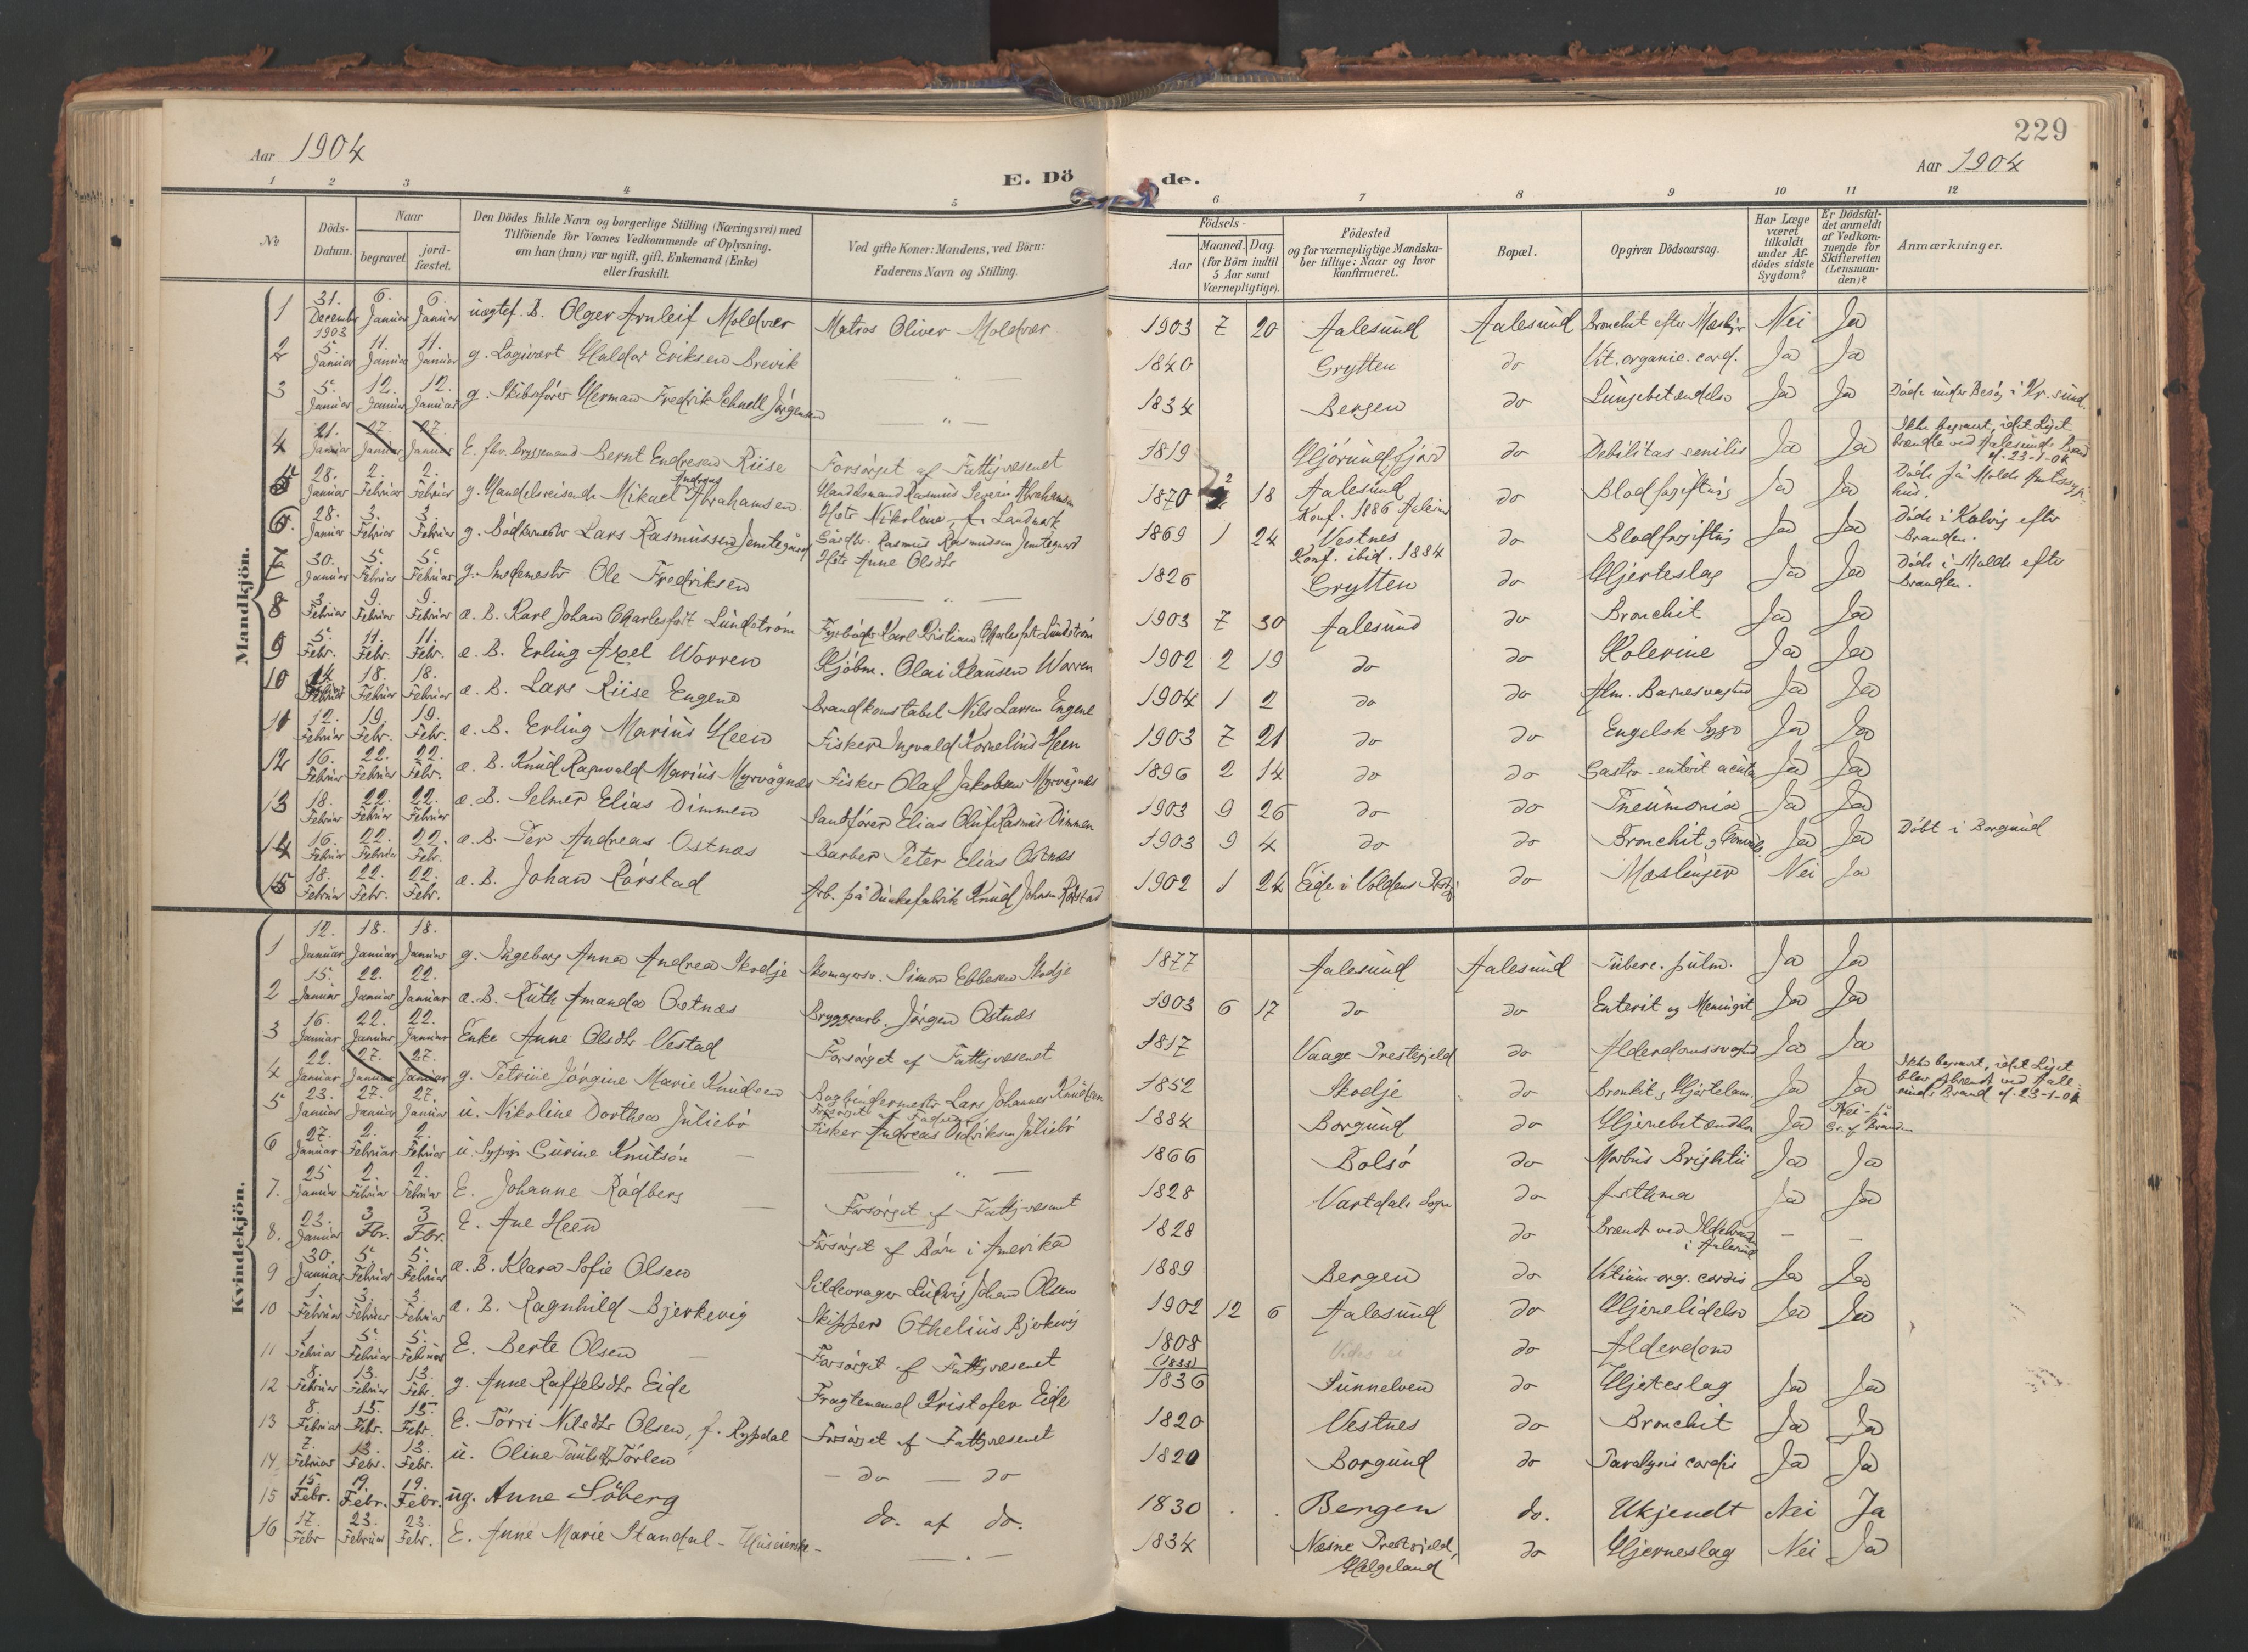 229
Aar 1904
Aar 1904
E. Dö de.
1 2 3 4 5 6 7 8 9 10 11 12
№
Döds-Datum.
Naar
begravet.
jord-fæstet.
Den Dödes fulde Navn og borgerlige Stilling (Næringsvei) med
Tilföiende for Voxnes Vedkommende af Oplysning,
om han (hun) var ugift, gift, Enkemand (Enke)
eller fraskilt.
Ved gifte Koner: Mandens, ved Börn:
Faderens Navn og Stilling.
Födsels-
Aar
Maaned. Dag.
(for Börn indtil
5 Aar samt
Værnepligtige).
Födested
og for værnepligtige Mandska-
ber tillige: Naar og hvor
konfirmeret.
Bopæl.
Opgiven Dödsaarsag.
Har Læge
været
tilkaldt
under Af-
dödes sidste
Sygdom?
Er Dödsfal-
det anmeldt
af Vedkom-
mende for
Skifteretten
(Lensman-
den)?
Anmærkninger.
Mandkjön.
1 31. December 1903 6. Januar 6. Januar uægtef. B. Olger Arnleif Moldvær Matros Oliver Moldvær 1903 7 20 Aalesund Aalesund Bronchit efter Nei Ja
2 5. Januar 11. Januar 11. Januar g. Logivært Haldor Eriksen Brevik — " — 1840 Grytten do Vit. organic. cord. Ja Ja
3 5. Januar 12. Januar 12. Januar g. Skibsfører Herman Fredrik Schnell Jørgensen — " — 1834 Bergen do Lungebetændelse Ja Ja Døde under Besøg i Kr.sund.
4 21. Januar 27. Januar 27. Januar E. fhv. Bryggemand Bernt Endresen Riise Forsørget af Fattigvæsenet 1819 Hjørundfjord do Debilitas senilis Ja Ja Ikke begravet, idet Liget brændte ved Aalesunds Brand d. 23-1-04
5 28. Januar 2. Februar 2. Februar g. Handelsreisende Mikael Andreas Abrahamsen Handelsmand Rasmus Severin Abrahamsen Hstr Nikoline f. Landmark 1870 2 18 Aalesund Konf. 1886 Aalesund do Blodforgiftning Ja Ja Døde på Molde Amtssygehus.
6. 28. Januar 3. Februar 3. Februar g. Bødkermester Lars Rasmussen Jemtegaard Gårdbr. Rasmus Rasmussen Jemtegaard Hstr Anne Olsdtr 1869 1 24 Vestnes Konf. ibid. 1884 do Blodforgiftning Ja Ja Døde i Kalvig efter Branden.
7 30. Januar 5. Februar 5. Februar g. Ole Fredriksen — " — 1826 Grytten do Hjerteslag Ja Ja Døde i Molde efter Branden.
8 3. Februar 9. Februar 9. Februar æ. B. Karl Johan Lundstrøm Fyrbøder Karl Kristian Lundstrøm 1903 7 30 Aalesund do Bronchit Ja Ja
9 5. Febr. 11. Febr. 11. Febr. æ. B. Erling Axel Worren Kjøbm. Olai Klausen Worren 1902 2 19 do do Kolerine Ja Ja
10 14 Februar 18. Februar 18. Februar æ. B. Lars Riise Engene Brandkonstabel Nils Larsen Engene 1904 1 2 do do Alm. Barnesvaghed Ja Ja
11 12. Februar 19. Febr. 19. Febr. æ. B. Erling Marius Heen Fisker Ingvald Kornelius Heen 1903 7 21 do do Engelsk Syge Ja Ja
12 16. Februar 22. Februar 22. Febr. æ. B. Knud Ragnvald Marius Myrvågnes Fisker Olaf Jakobsen Myrvågnes 1896 2 14 do do Gastro-enterit acuta Ja Ja
13 18. Februar 22. Februar 22. Februar æ. B. Selmer Elias Dimmen Elias Oluf Rasmus Dimmen 1903 9 26 do do Pneumonia Ja Ja
14 16. Februar 22. Februar 22. Febr. æ. B. Per Andreas Ostnæs Barber Peter Elias Ostnæs 1903 9 4 do do Bronchit Ja Ja Døbt i Borgund
15 18. Februar 22. Febr. 22. Febr. æ. B. Johan Rørstad Arb. på Knud Johnsen Rørstad 1902 1 24 Eide i Voldens Prestgj do Mæslinger Nei Ja
Kvindekjön.
1 12. Januar 18. Januar 18. Januar g. Ingeborg Anna Andrea Skodje Skomagersv. Simon Ebbesen Skodje 1877 Aalesund Aalesund Tuberc. pulm. Ja Ja
2 15. Januar 22. Januar 22. Januar æ. B. Ruth Amanda Ostnæs Bryggearb. Jørgen Ostnæs 1903 6 17 do do Enterit og Meningit Ja Ja
3 16. Januar 22. Januar 22. Januar Enke Anne Olsdtr Vestad Forsørget af Fattigvæsenet 1817 Vaage Prestegjeld do Alderdomssvaghed Ja Ja
4 22. Januar 27. Januar 27. Januar g. Petrine Jørgine Marie Knudsen Bogbindermester Lars Johannes Knudsen 1852 Skodje do Bronkit, Hjertelam. Ja Ja Ikke begravet, idet Liget blev opbrændt ved Aalesunds Brand d. 23-1-04
5 23. Januar 27. Januar 27. Januar u. Nikoline Dorthea Juliebø Forsørget af Faderen Fisker Andreas Didriksen Juliebø 1884 Borgund do Hjernebetændelse Ja Nei på Gr. af Branden
6 27. Januar 2. Februar 2. Februar u. Sypige Gurine Knutsøn — " — 1866 Bolsø do Morbus Brightii Ja Ja
7. 25 Januar 2. Februar 2. Februar E. Johanne Rødberg Forsørget af Fattigvæsenet 1828 Vartdals Sogn do Asthma Ja Ja
8. 23. Januar 3 Fbr. 3 Fbr. E. Ane Heen Forsørget af Børn i Amerika 1828 do Brændt ved Ildebranden i Aalesund — —
9 30. Januar 5. Februar 5. Februar æ. B. Klara Sofie Olsen Sildevrager Ludvig Johan Olsen 1889 Bergen do Vitium org. cordis Ja Ja
10 1. Februar 3. Februar 3. Februar æ. B. Ragnhild Bjerkevig Skipper Othelius Bjerkevig 1902 12 6 Aalesund do Hjernelidelse Ja Ja
11 1 Februar 5. Februar 5. Februar E. Berte Olsen Forsørget af Fattigvæsenet 1808 (1833) Vides ei do Alderdom
12 8. Februar 13. Februar 13. Febr. g. Anne Raffelsdtr Eide Fragtemand Kristofer Eide 1836 Sunnelven do Hjerteslag Ja Ja
13 8. Februar 15. Febr. 15. Febr. E. Tørri Nilsdtr Olsen, f. Rypdal Forsørget af Fattigvæsenet 1820 Vestnes do Bronchit Ja Ja
14 7. Februar 13. Febr. 13. Febr. u. Oline Tørlen — do — do 1820 Borgund do Paralysis cordis Ja Ja
15 15. Febr. 19. Febr. 19. Febr. ug. Anne Søberg do. af do. 1830 Bergen do. Ukjendt Nei Ja
16 17. Febr 23. Februar 23. Febr. E. Anne Marie Standal — — 1834 Næsne Prestegjeld, Helgeland do Hjerneslag Nei Ja